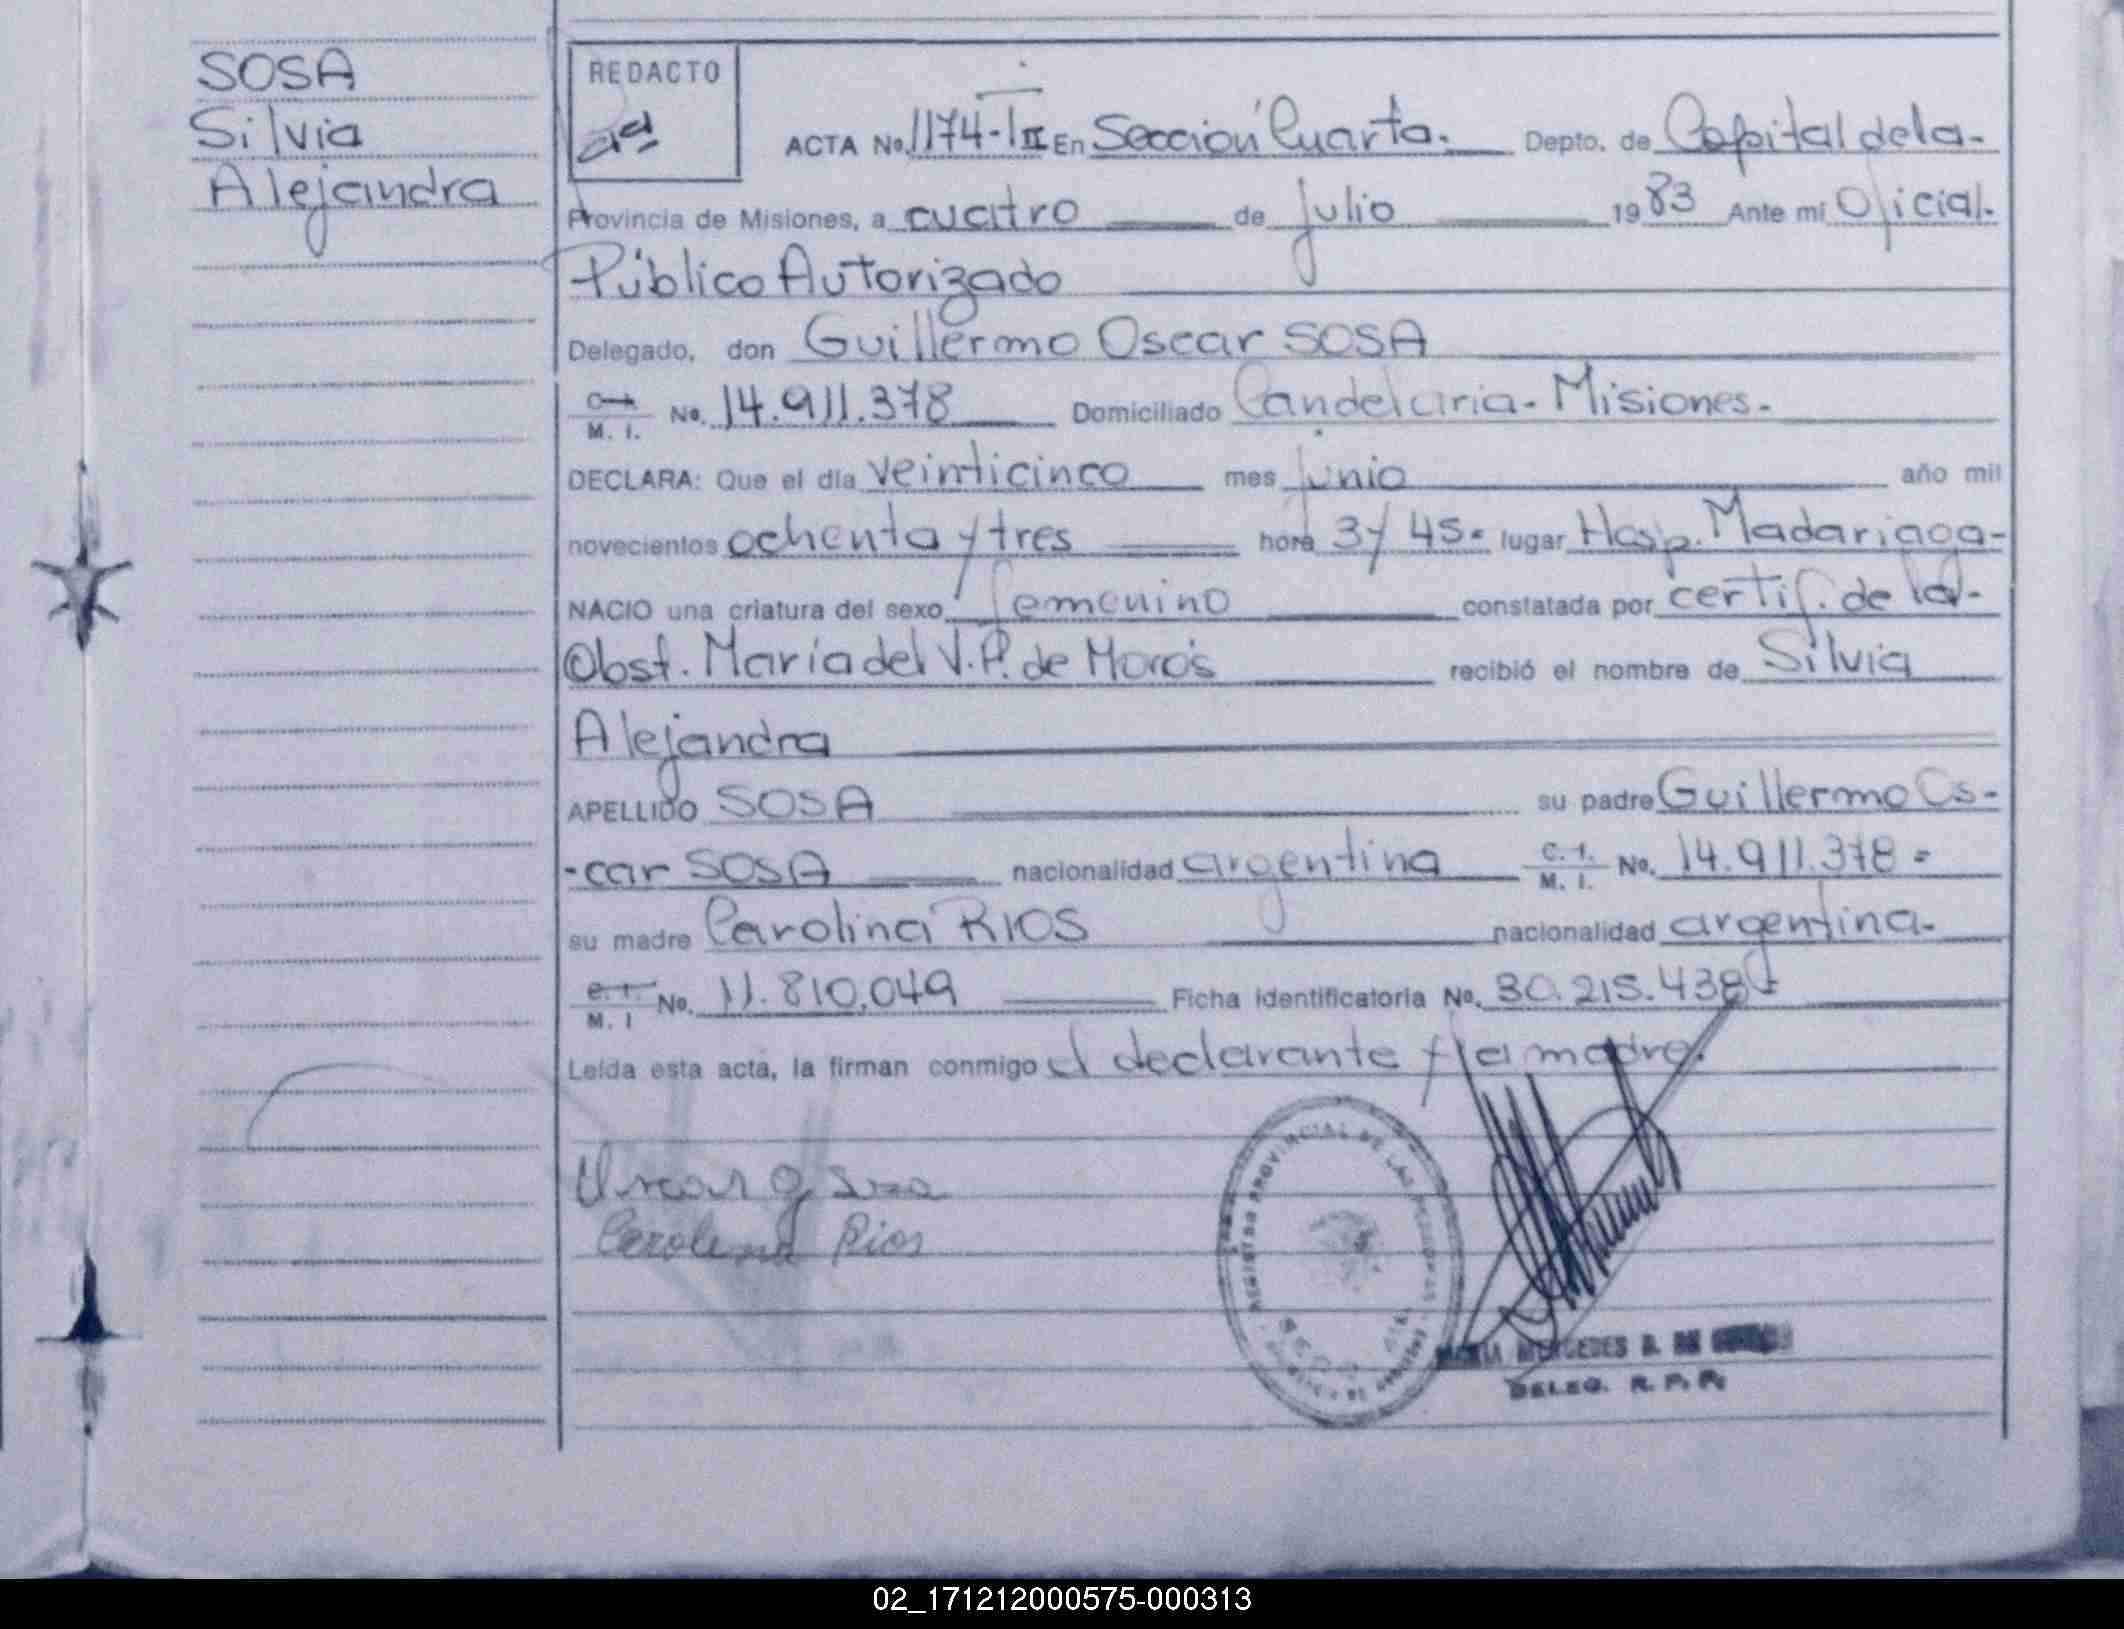 SOSA
Silvia
Alejandra
REDACTO
ACTA No. 1174-I II En Sección Cuarta. Depto. de Capital de la-
Provincia de Misiones, a cuatro de julio 1983 Ante mi Oficial.
Público Autorizado
Delegado, don Guillermo Oscar SOSA
M. I. No. 14.911.378 Domiciliado Candelaria - Misiones.
DECLARA: Que el día veinticinco mes junio año mil
novecientos ochenta y tres hora 3 y 45. lugar Hosp. Madariaga-
NACIO una criatura del sexo femenino constatada por certif. de la-
Obst. María del V. P. de recibió el nombre de Silvia
Alejandra
APELLIDO SOSA su padre Guillermo Os-
-car SOSA nacionalidad argentina C. I. M. I. No. 14.911.378 =
su madre Carolina RIOS nacionalidad argentina.
C. I. M. I No. 11.810.049 Ficha identificatoria No. 30.215.438
Leída esta acta, la firman conmigo el declarante y la madre.
Oscar G Sosa
Carolina Rios
REGISTRO PROVINCIAL DE LAS PERSONAS
MARIA MERCEDES B. DE
DELEG. R. P. P.
02_171212000575-000313